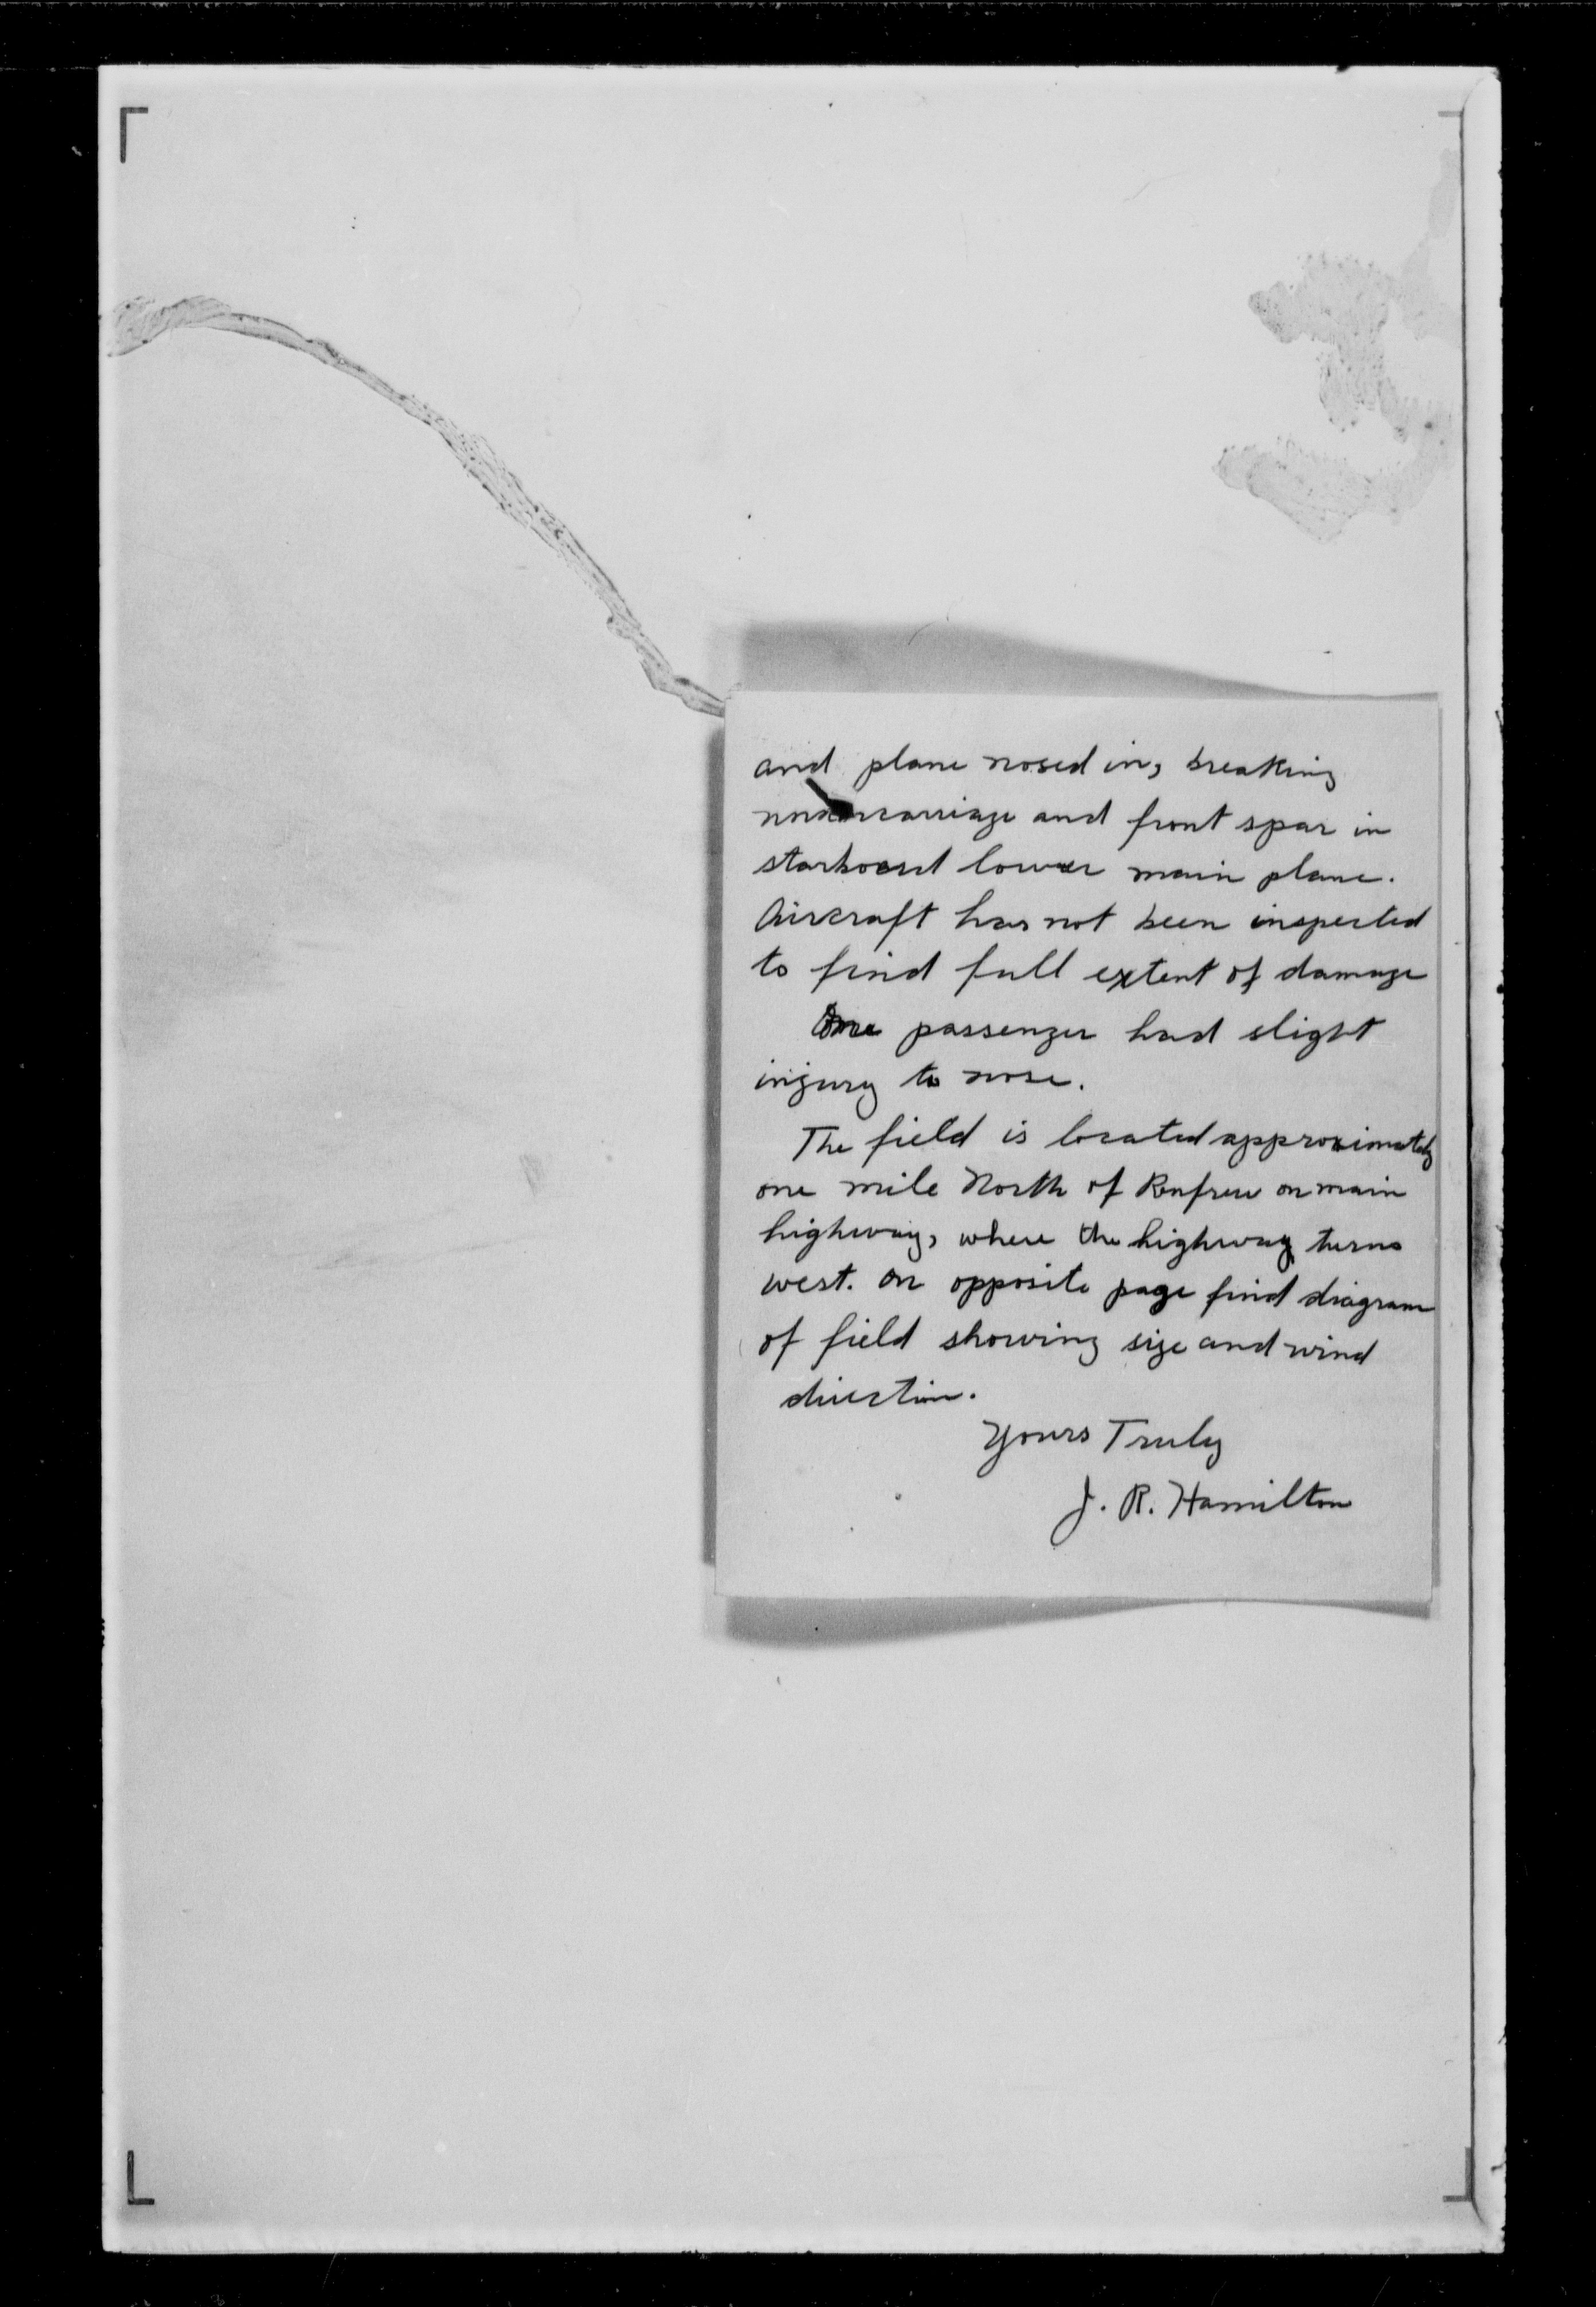 and plane nosed in, breaking
undercarriage and front spar in
starboard lower main plane.
Aircraft has not been inspected
to find full extent of damage
One passenger had slight
injury to nose.
The field is located approximately
one mile North of Renfrew on main
highway, where the highway turns
west. On opposite page find diagram
of field showing size and wind
direction.
Yours Truly
J. R. Hamilton